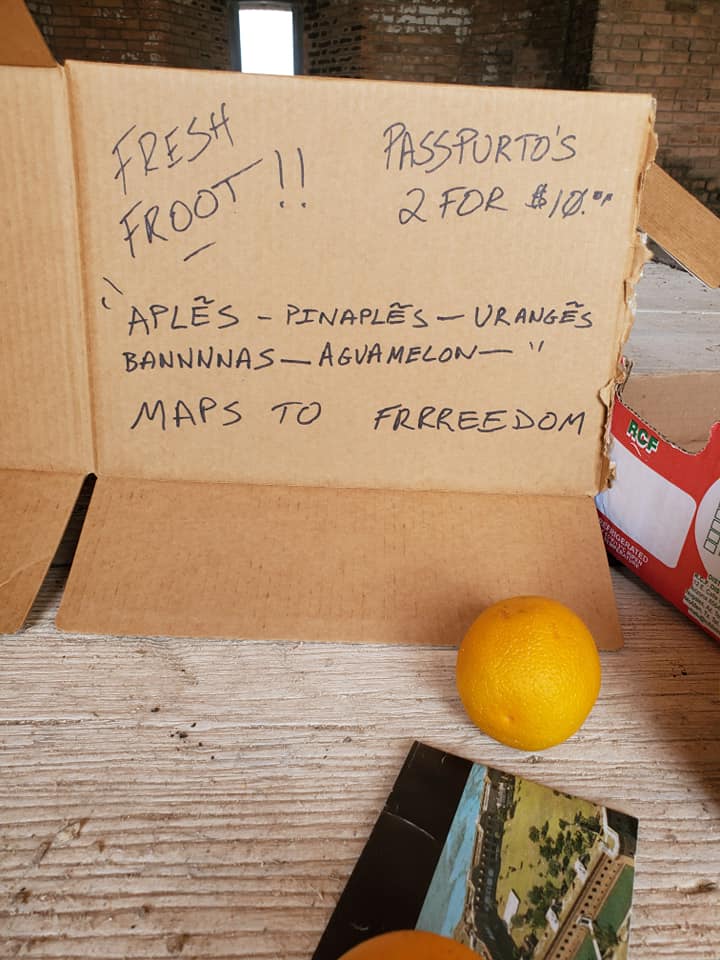 FRESH
FROOT !!
PASSPURTO'S
2 FOR $10.
"APLẼS - PINAPLẼS - URANGẼS
BANNNNAS - AGUAMELON - "
MAPS TO FRRREEDOM
RCF